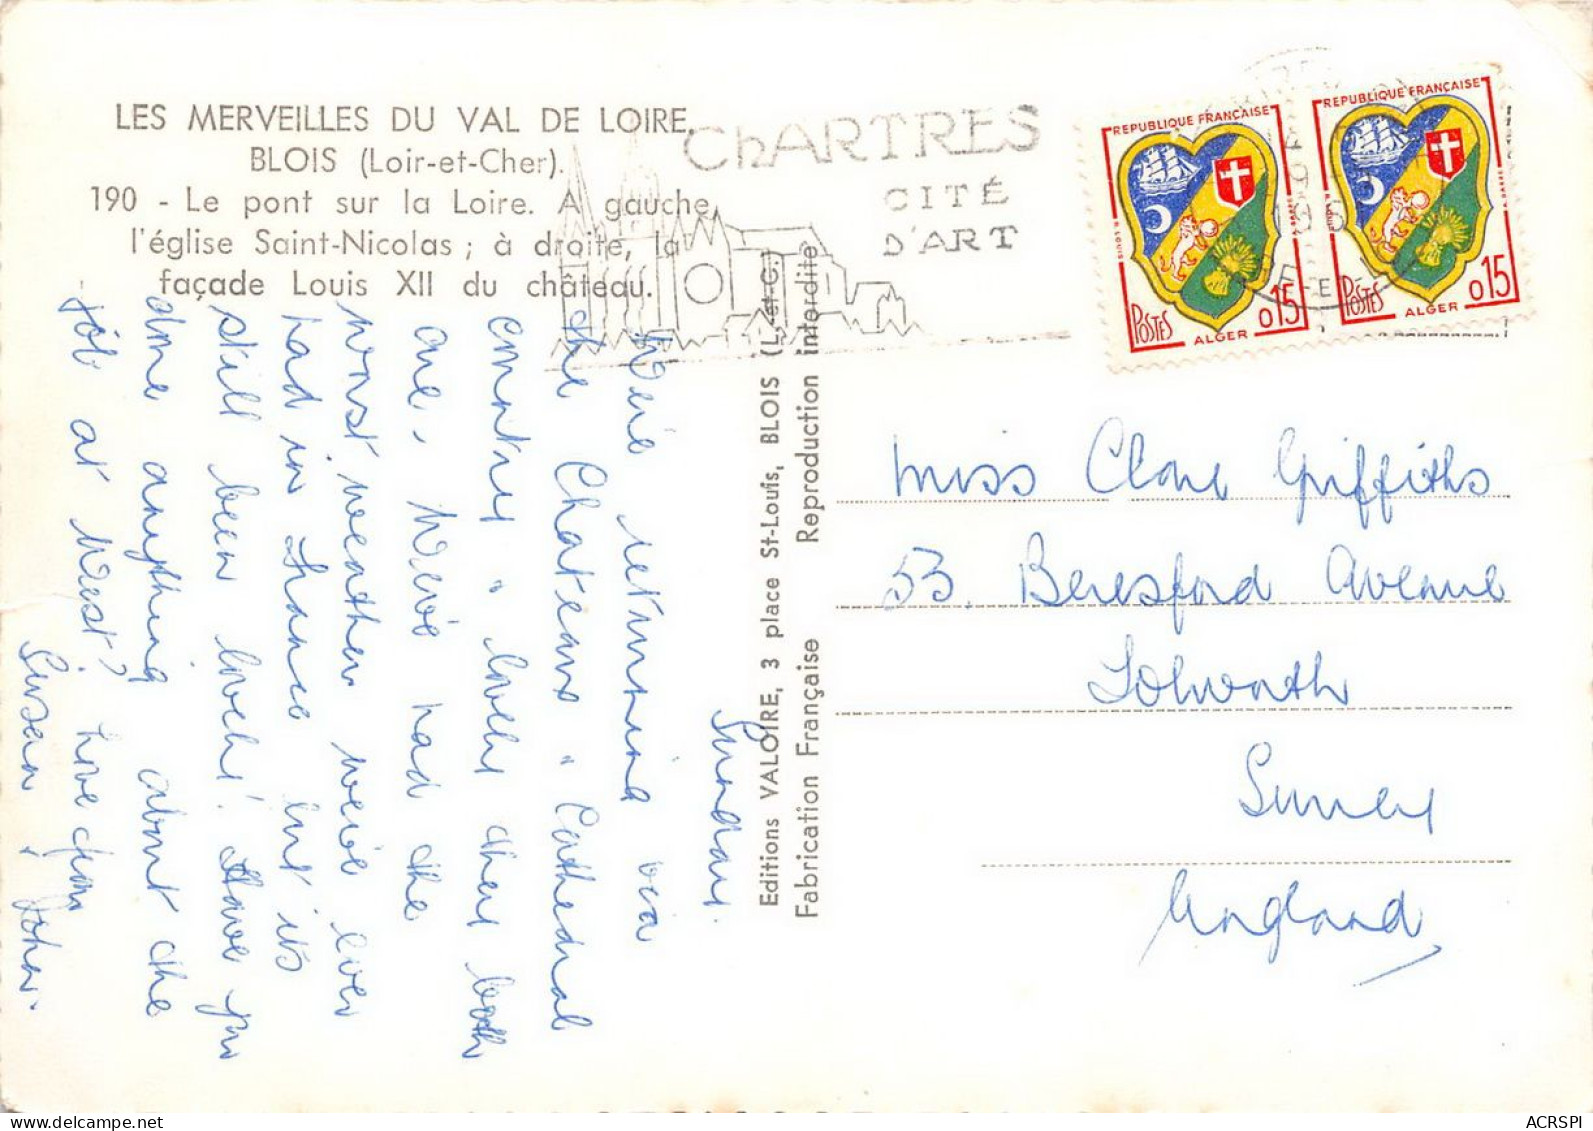 LES MERVEILLES DU VAL DE LOIRE.
BLOIS (Loir-et-Cher).
190 - Le pont sur la Loire. A gauche,
l'église Saint-Nicolas ; à droite, la
façade Louis XII du château.
ChARTRES
CITÉ
D'ART
REPUBLIQUE FRANÇAISE
POSTES
ALGER
0,15
REPUBLIQUE FRANÇAISE
POSTES
ALGER
0,15
Sunday.
We're returning via
the Chateaux & Cathedral
country & lovely they both
are, We've had the
worst weather we've ever
had in France but it's
still been lovely! Have you
done anything about the
job at West? Love from
Susan & John.
Editions VALOIRE, 3 place St-Louis, BLOIS (L.-et-C.)
Fabrication Française Reproduction interdite
Miss Clare Griffiths
53, Beresford Avenue
Tolworth
Surrey
England
ACRSPI